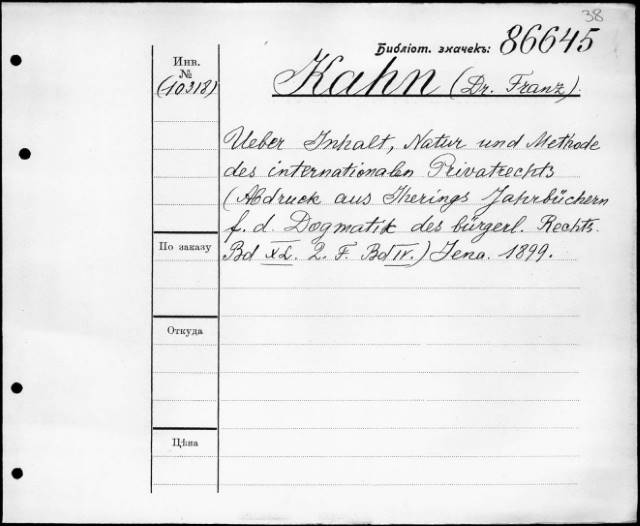 38
Библіот. значекъ: 86645
Инв.
№
(10318)
Kahn (Dr. Franz).
Ueber Inhalt, Natur und Methode
des internationalen Privatrechts
(Abdruck aus Iherings Jahrbüchern
f. d. Dogmatik des bürgerl. Rechts.
Bd XL. 2. F. Bd IV.) Jena. 1899.
По заказу
Откуда
Цѣна